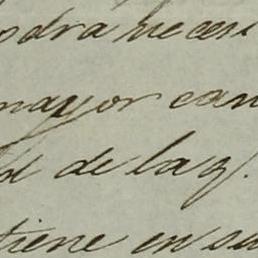 odra neces
mayor can
d de la q.
tiene en su